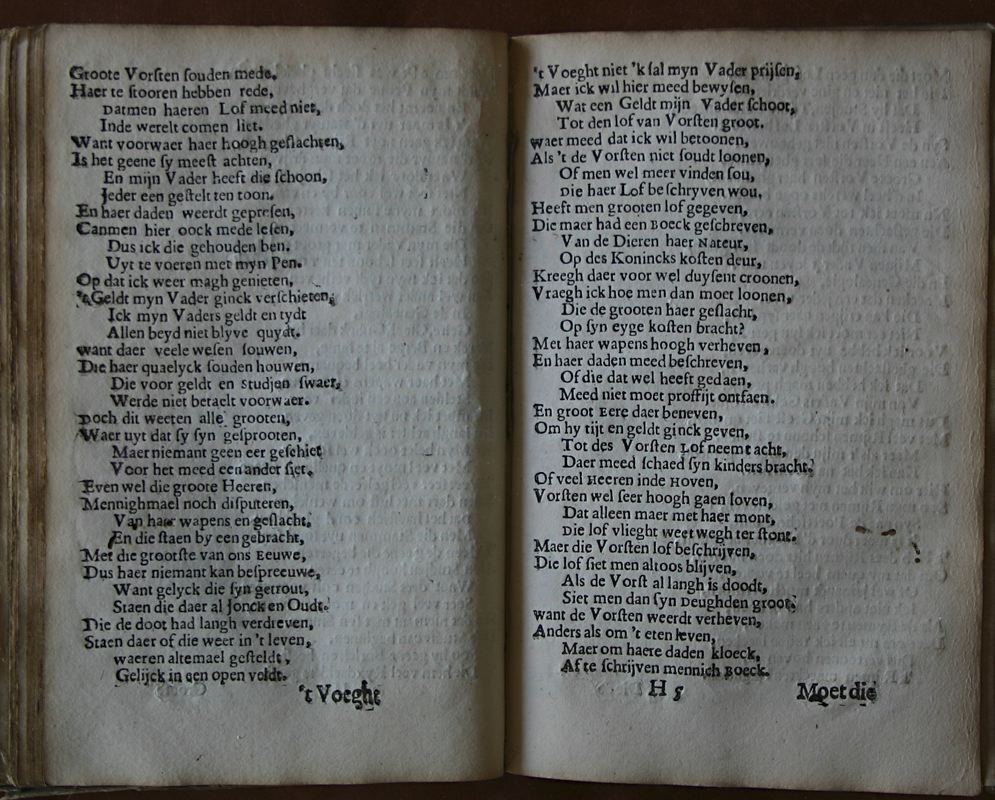 Groote Vorſten ſouden mede.
Haer te ſtooren hebben rede,
Datmen haeren Lof meed niet,
Inde werelt comen liet.
Want voorwaer haer hoogh geſlachten,
Is het geene ſy meeſt achten,
En mijn Vader heeft die ſchoon,
Jeder een geſtelt ten toon.
En haer daden weerdt gepreſen,
Canmen hier oock mede leſen,
Dus ick die gehouden ben.
Uyt te voeren met myn Pen.
Op dat ick weer magh genieten,
't Geldt myn Vader ginck verſchieten,
Ick myn Vaders geldt en tydt
Allen beyd niet blyve quydt.
want daer veele weſen ſouwen,
Die haer quaelyck ſouden houwen,
Die voor geldt en studjen ſwaer,
Werde niet betaelt voorwaer.
Doch dit weeten alle grooten,
Waer uyt dat ſy ſyn geſprooten,
Maer niemant geen eer geſchiet
Voor het meed een ander ſiet.
Even wel die groote Heeren,
Mennighmael noch diſputeren,
Van haer wapens en geſlacht,
En die ſtaen by een gebracht,
Met die grootſte van ons Eeuwe,
Dus haer niemant kan beſpreeuwe,
Want gelyck die ſyn getrout,
Staen die daer al Jonck en Oudt.
Die de doot had langh verdreven,
Staen daer of die weer in 't leven,
waeren altemael geſteldt,
Gelijck in een open veldt.
't Voeght
't Voeght niet 'k ſal myn Vader prijſen,
Maer ick wil hier meed bewyſen,
Wat een Geldt mijn Vader ſchoot,
Tot den lof van Vorſten groot.
waer meed dat ick wil betoonen,
Als 't de Vorſten niet ſoudt loonen,
Of men wel meer vinden ſou,
Die haer Lof beſchryven wou.
Heeft men grooten lof gegeven,
Die maer had een Boeck geſchreven,
Van de Dieren haer Nateur,
Op des Konincks koſten deur,
Kreegh daer voor wel duyſent croonen,
Vraegh ick hoe men dan moet loonen,
Die de grooten haer geſlacht,
Op ſyn eyge koſten bracht?
Met haer wapens hoogh verheven,
En haer daden meed beſchreven,
Of die dat wel heeft gedaen,
Meed niet moet proffijt ontfaen.
En groot Eere daer beneven,
Om hy tijt en geldt ginck geven,
Tot des Vorſten Lof neemt acht,
Daer meed ſchaed ſyn kinders bracht.
Of veel Heeren inde Hoven,
Vorſten wel ſeer hoogh gaen loven,
Dat alleen maer met haer mont,
Die lof vlieght weet wegh ter ſtont.
Maer die Vorſten lof beſchrijven,
Die lof ſiet men altoos blijven,
Als de Vorſt al langh is doodt,
Siet men dan ſyn Deughden groot.
want de Vorſten weerdt verheven,
Anders als om 't eten leven,
Maer om haere daden kloeck,
Af te ſchrijven mennich Boeck.
H 5
Moet die